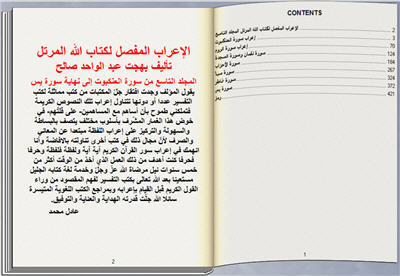 CONTENTS
الإعراب المفصل لكتاب الله المرتل المجلد التاسع 2
إعراب سورة العنكبوت 3
إعراب سورة الروم 70
سورة لقمان وسورة السجدة
سورة الأحزاب
سورة سبأ
سورة فاطر
سورة يس
رمز
1
الإعراب المفصل لكتاب الله المرتل
تأليف بهجت عبد الواحد صالح
المجلد التاسع من سورة العنكبوت إلى نهاية سورة يس
يقول المؤلف وجدت افتقار جل المكتبات من كتب مماثلة لكتب
التفسير عددا أو دونها تتناول إعراب تلك النصوص الكريمة
فتملكني طموح بأن أساهم مع المساهمين، على قلتهم، في
خوض هذا الغمار المشرف بأسلوب مختلف يتصف بالبساطة
والسهولة والتركيز على إعراب اللفظة مبتعدا عن المعاني
والصرف لأن مجال ذلك في كتب أخرى تناولته بالإفاضة وأنا
انهمك في إعراب سور القرآن الكريم آية آية ولفظة فلفظة وحرفا
فحرفا كنت أهدف من ذلك العمل الذي أخذ من الوقت أكثر من
خمس سنوات نيل مرضاة الله عز وجل وخدمة لغة كتابه الجليل
مستعينا بعد الله تعالى بكتب التفسير لفهم المقصود من وراء
القول الكريم قبل القيام بإعرابه وبمراجع الكتب اللغوية المتيسرة
سائلا الله جلت قدرته الهداية والعناية والتوفيق.
عادل محمد
2